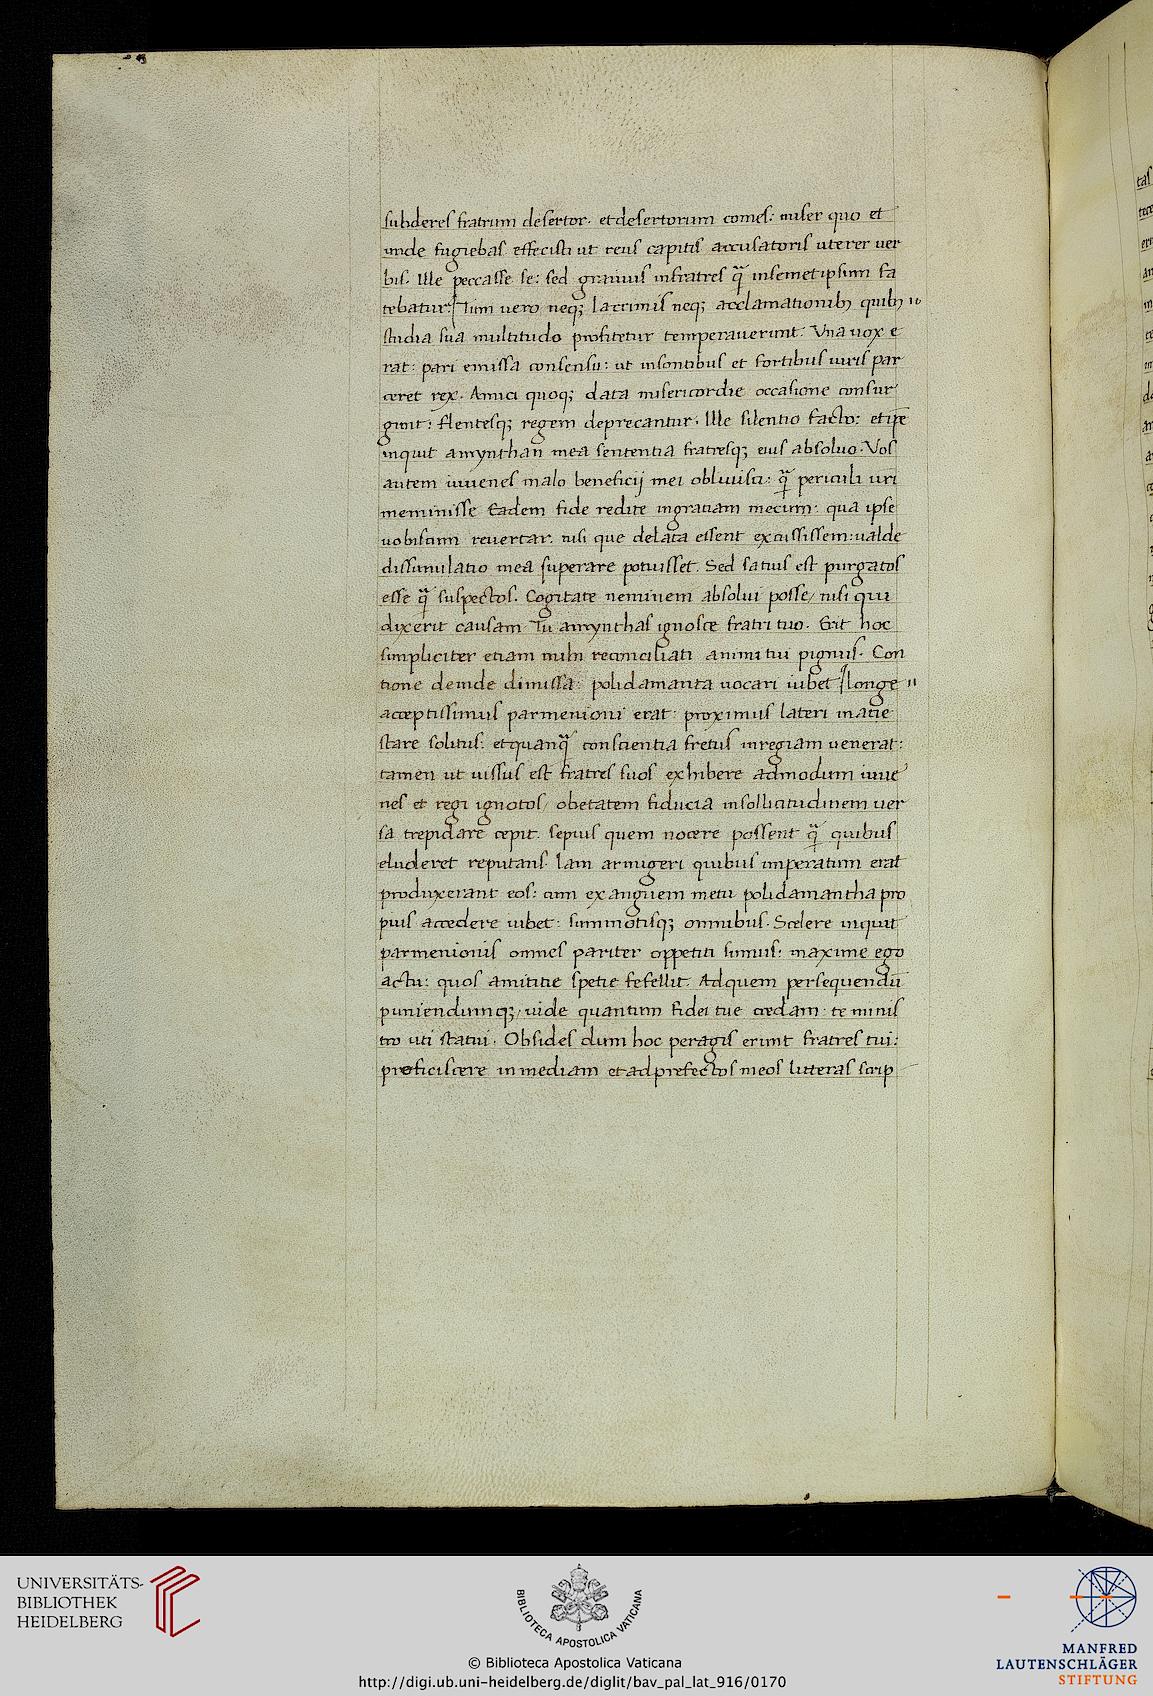 subderes fratrum desertor. et desertorum comes: miser quo et
unde fugiebas effecisti ut reus capitis accusatoris uterer uer
bis. Ille peccasse se: sed grauius in fratres q̃ in semet ipsum fa
tebatur: Tum uero neq; lacrimis neq; acclamationib; quib; 10
studia sua multitudo profitetur temperauerunt. Vna uox e
rat: pari emissa consensu: ut insontibus et fortibus uiris par
ceret rex. Amici quoq; data misericordie occasione consur
gunt: flentesq; regem deprecantur. Ille silentio facto: et ip̃e
inquit amynthan mea sententia fratresq; eius absoluo. Vos
autem iuuenes malo beneficij mei obliuisci: q̃ periculi uri
meminisse. Eadem fide redite in gratiam mecum: qua ipse
uobiscum reuertar. nisi que delata essent excussissem: ualde
dissimulatio mea superare potuisset. Sed satius est purgatos
esse q̃ suspectos. Cogitate neminem absolui posse/ nisi qui
dixerit causam. Tu amynthas ignosce fratri tuo. Erit hoc
simpliciter etiam mihi reconciliati animi tui pignus. Con
tione deinde dimissa: polidamanta uocari iubet longe 11
acceptissimus parmenioni erat: proximus lateri in acie
stare solitus: et quanq̃ conscientia fretus in regiam uenerat:
tamen ut iussus est fratres suos exhibere admodum iuue
nes et regi ignotos/ ob etatem fiducia in sollicitudinem uer
sa trepidare cepit. sepius quem nocere possent q̃ quibus
eluderet reputans. Iam armigeri quibus imperatum erat
produxerant eos: cum exanguem metu polidamantha pro
pius accedere iubet: summotisq; omnibus. Scelere inquit
parmenionis omnes pariter oppetiti sumus: maxime ego
actu: quos amititie spetie fefellit. Ad quem persequendũ
puniendumq;/ uide quantum fidei tue credam: te minis
tro uti statui. Obsides dum hoc peragis erunt fratres tui:
proficiscere in mediam et ad prefectos meos litteras scrip
UNIVERSITÄTS-
BIBLIOTHEK
HEIDELBERG
BIBLIOTECA APOSTOLICA VATICANA
© Biblioteca Apostolica Vaticana
http://digi.ub.uni-heidelberg.de/diglit/bav_pal_lat_916/0170
MANFRED
LAUTENSCHLÄGER
STIFTUNG